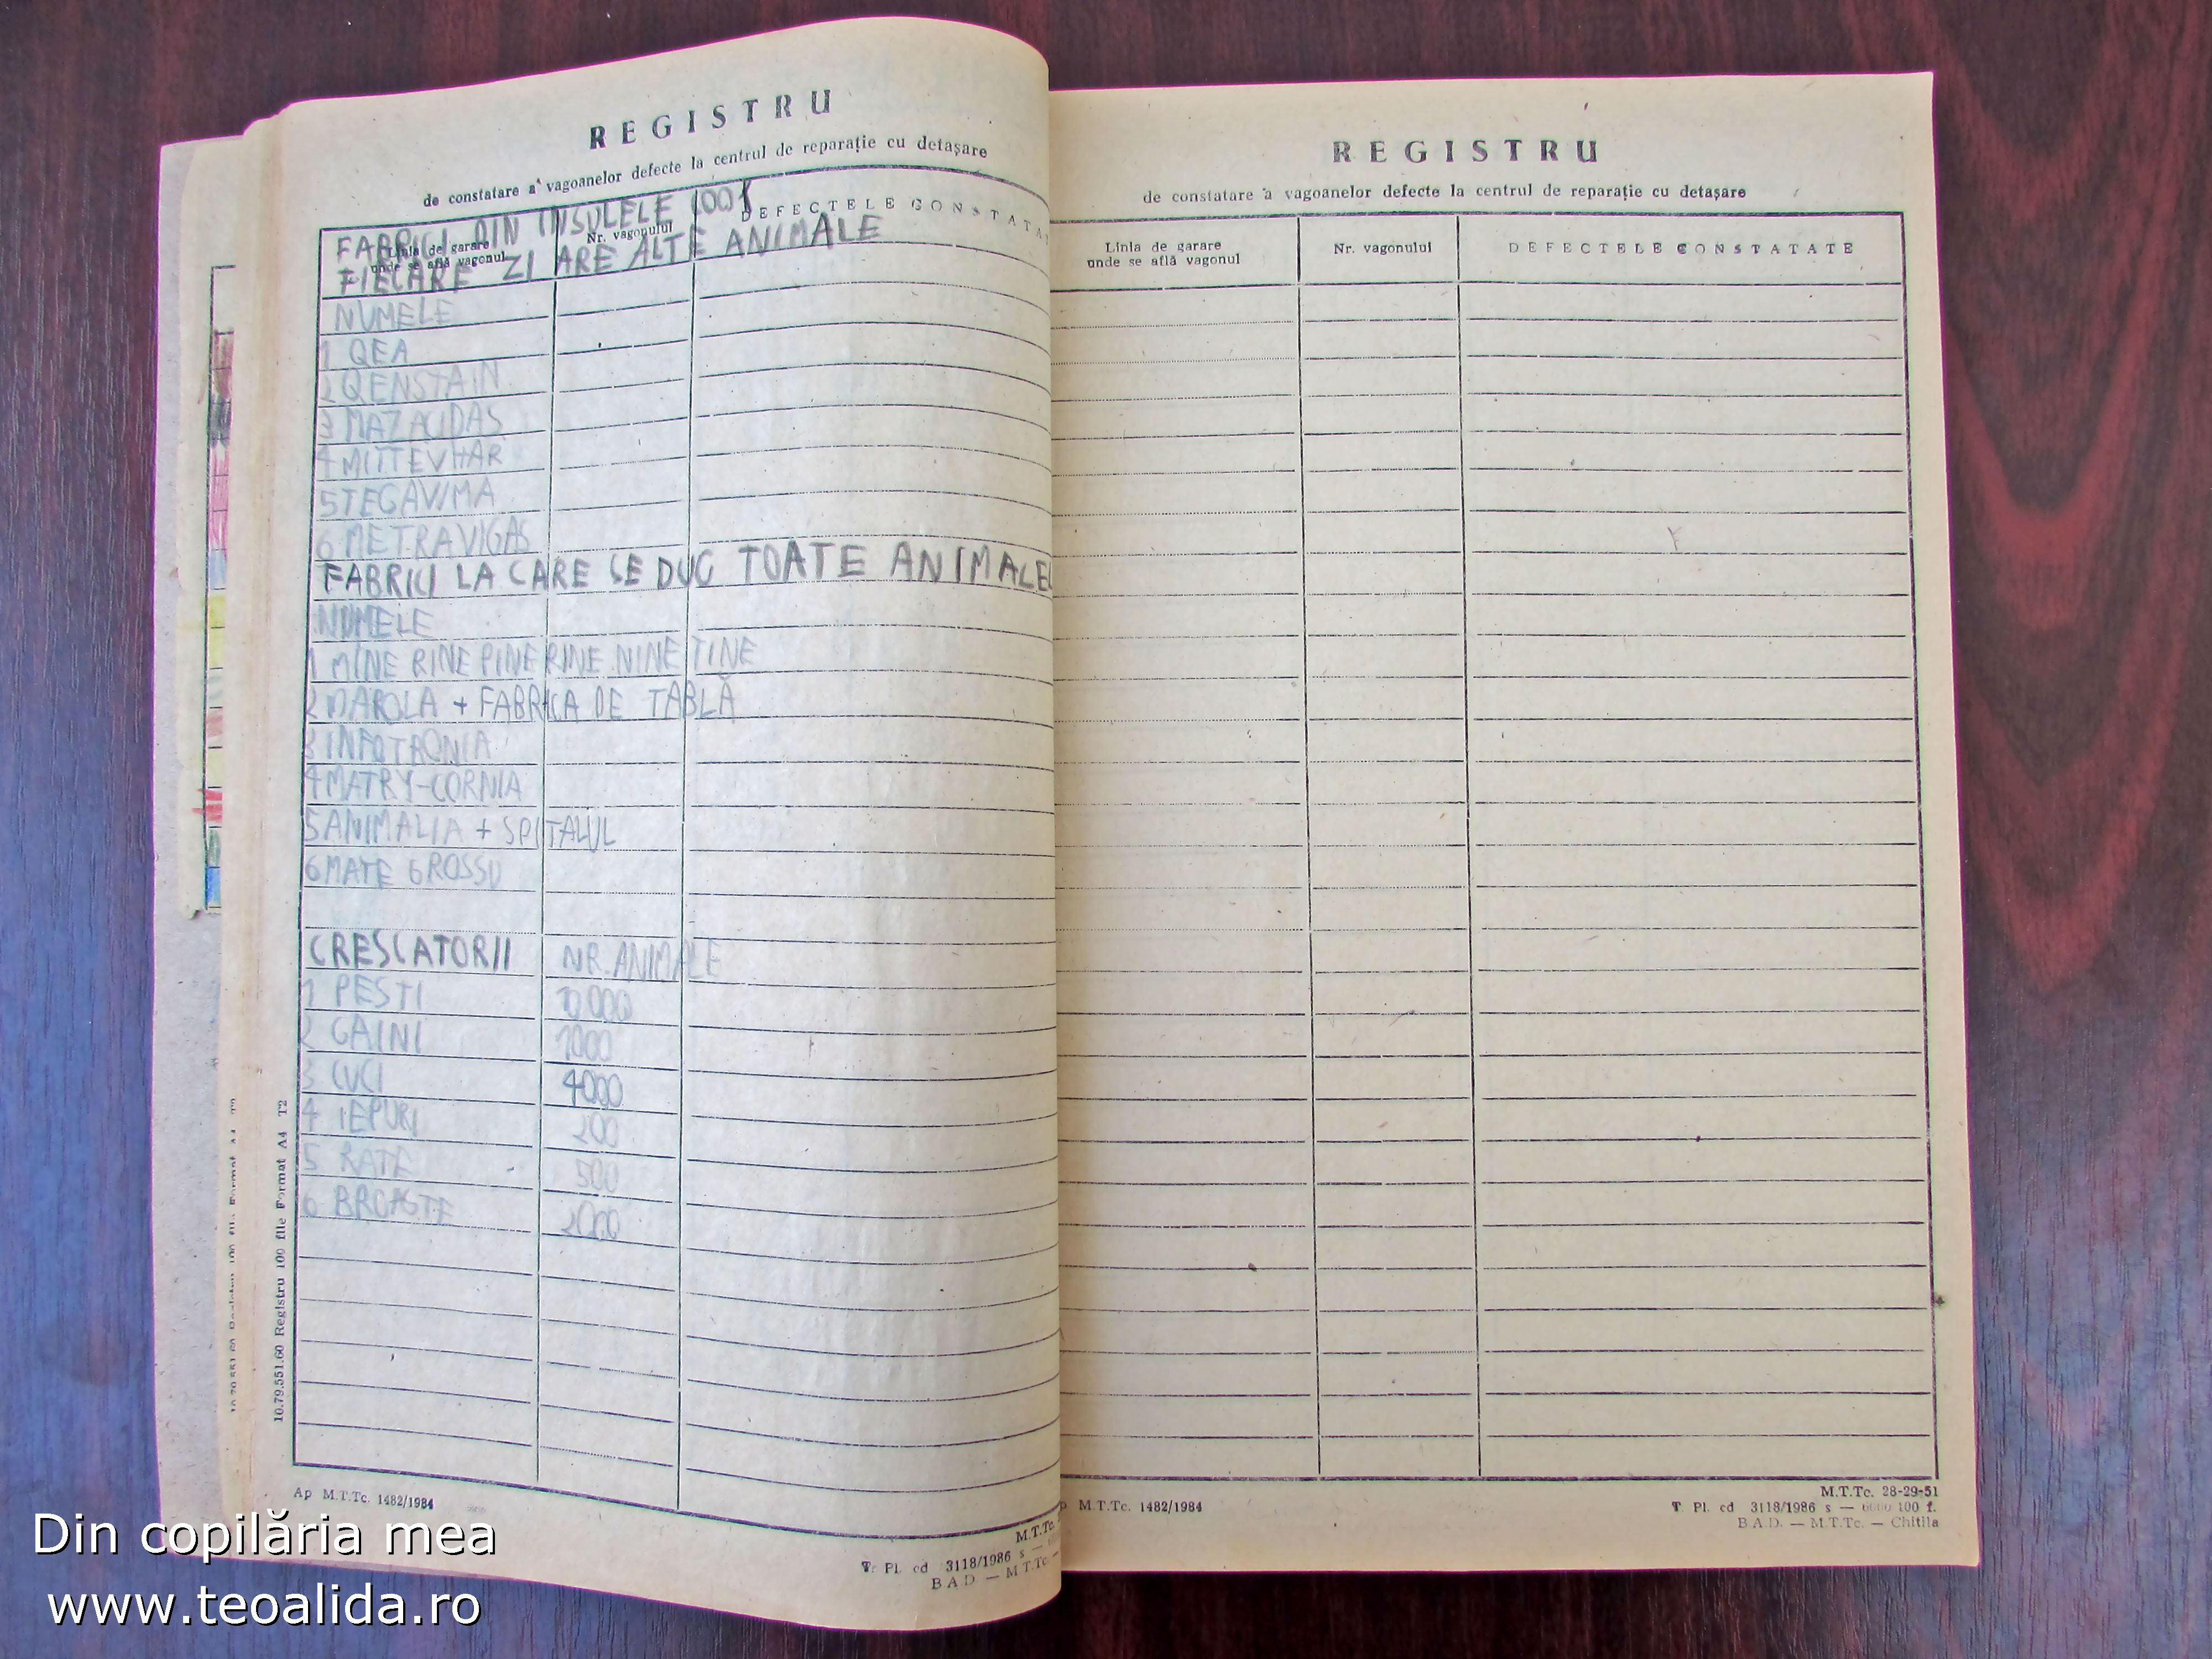 REGISTRU
de constatare a vagoanelor defecte la centrul de reparație cu detașare
FABRICI DIN INSULELE 1001
Linia de garare
unde se află vagonul
Nr. vagonului
DEFECTELE CONSTATA
FIECARE ZI ARE ALTE ANIMALE
NUMELE
1 QEA
2 QENSTAIN
3 MAZAUDAS
4 MITTEVHAR
5 TEGAVIMA
6 METRAVIGAS
FABRICI LA CARE SE DUC TOATE ANIMALEL
NUMELE
1 MINE RINE PINE RINE NINE TINE
2 MAROLA + FABRICA DE TABLĂ
3 INFOTRONIA
4 MATRY-CORNIA
5 ANIMALIA + SPITALUL
6 MATE GROSSU
CRESCATORII NR. ANIMALE
1 PESTI 10000
2 GAINI 1000
3 CUCI 4000
4 IEPURI 200
5 RATE 500
6 BROASTE 2000
10.79.551.60 Registru 100 file Format A4 T2
Ap M.T.Tc. 1482/1984
M.T.Tc.
T. Pl. cd 3118/1986 s —
B.A.D — M.T.Tc —
REGISTRU
de constatare a vagoanelor defecte la centrul de reparație cu detașare
Linia de garare
unde se află vagonul
Nr. vagonului
DEFECTELE CONSTATATE
M.T.Tc. 1482/1984
M.T.Tc. 28-29-51
T. Pl. cd 3118/1986 s — 6000 100 f.
B.A.D. — M.T.Tc. — Chitila
Din copilăria mea
www.teoalida.ro